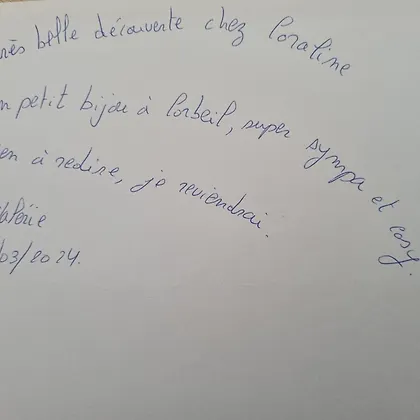 rès belle découverte chez Coraline
n petit bijou à Corbeil, super sympa et cosy.
en à redire, je reviendrai.
alérie
/03/2024.